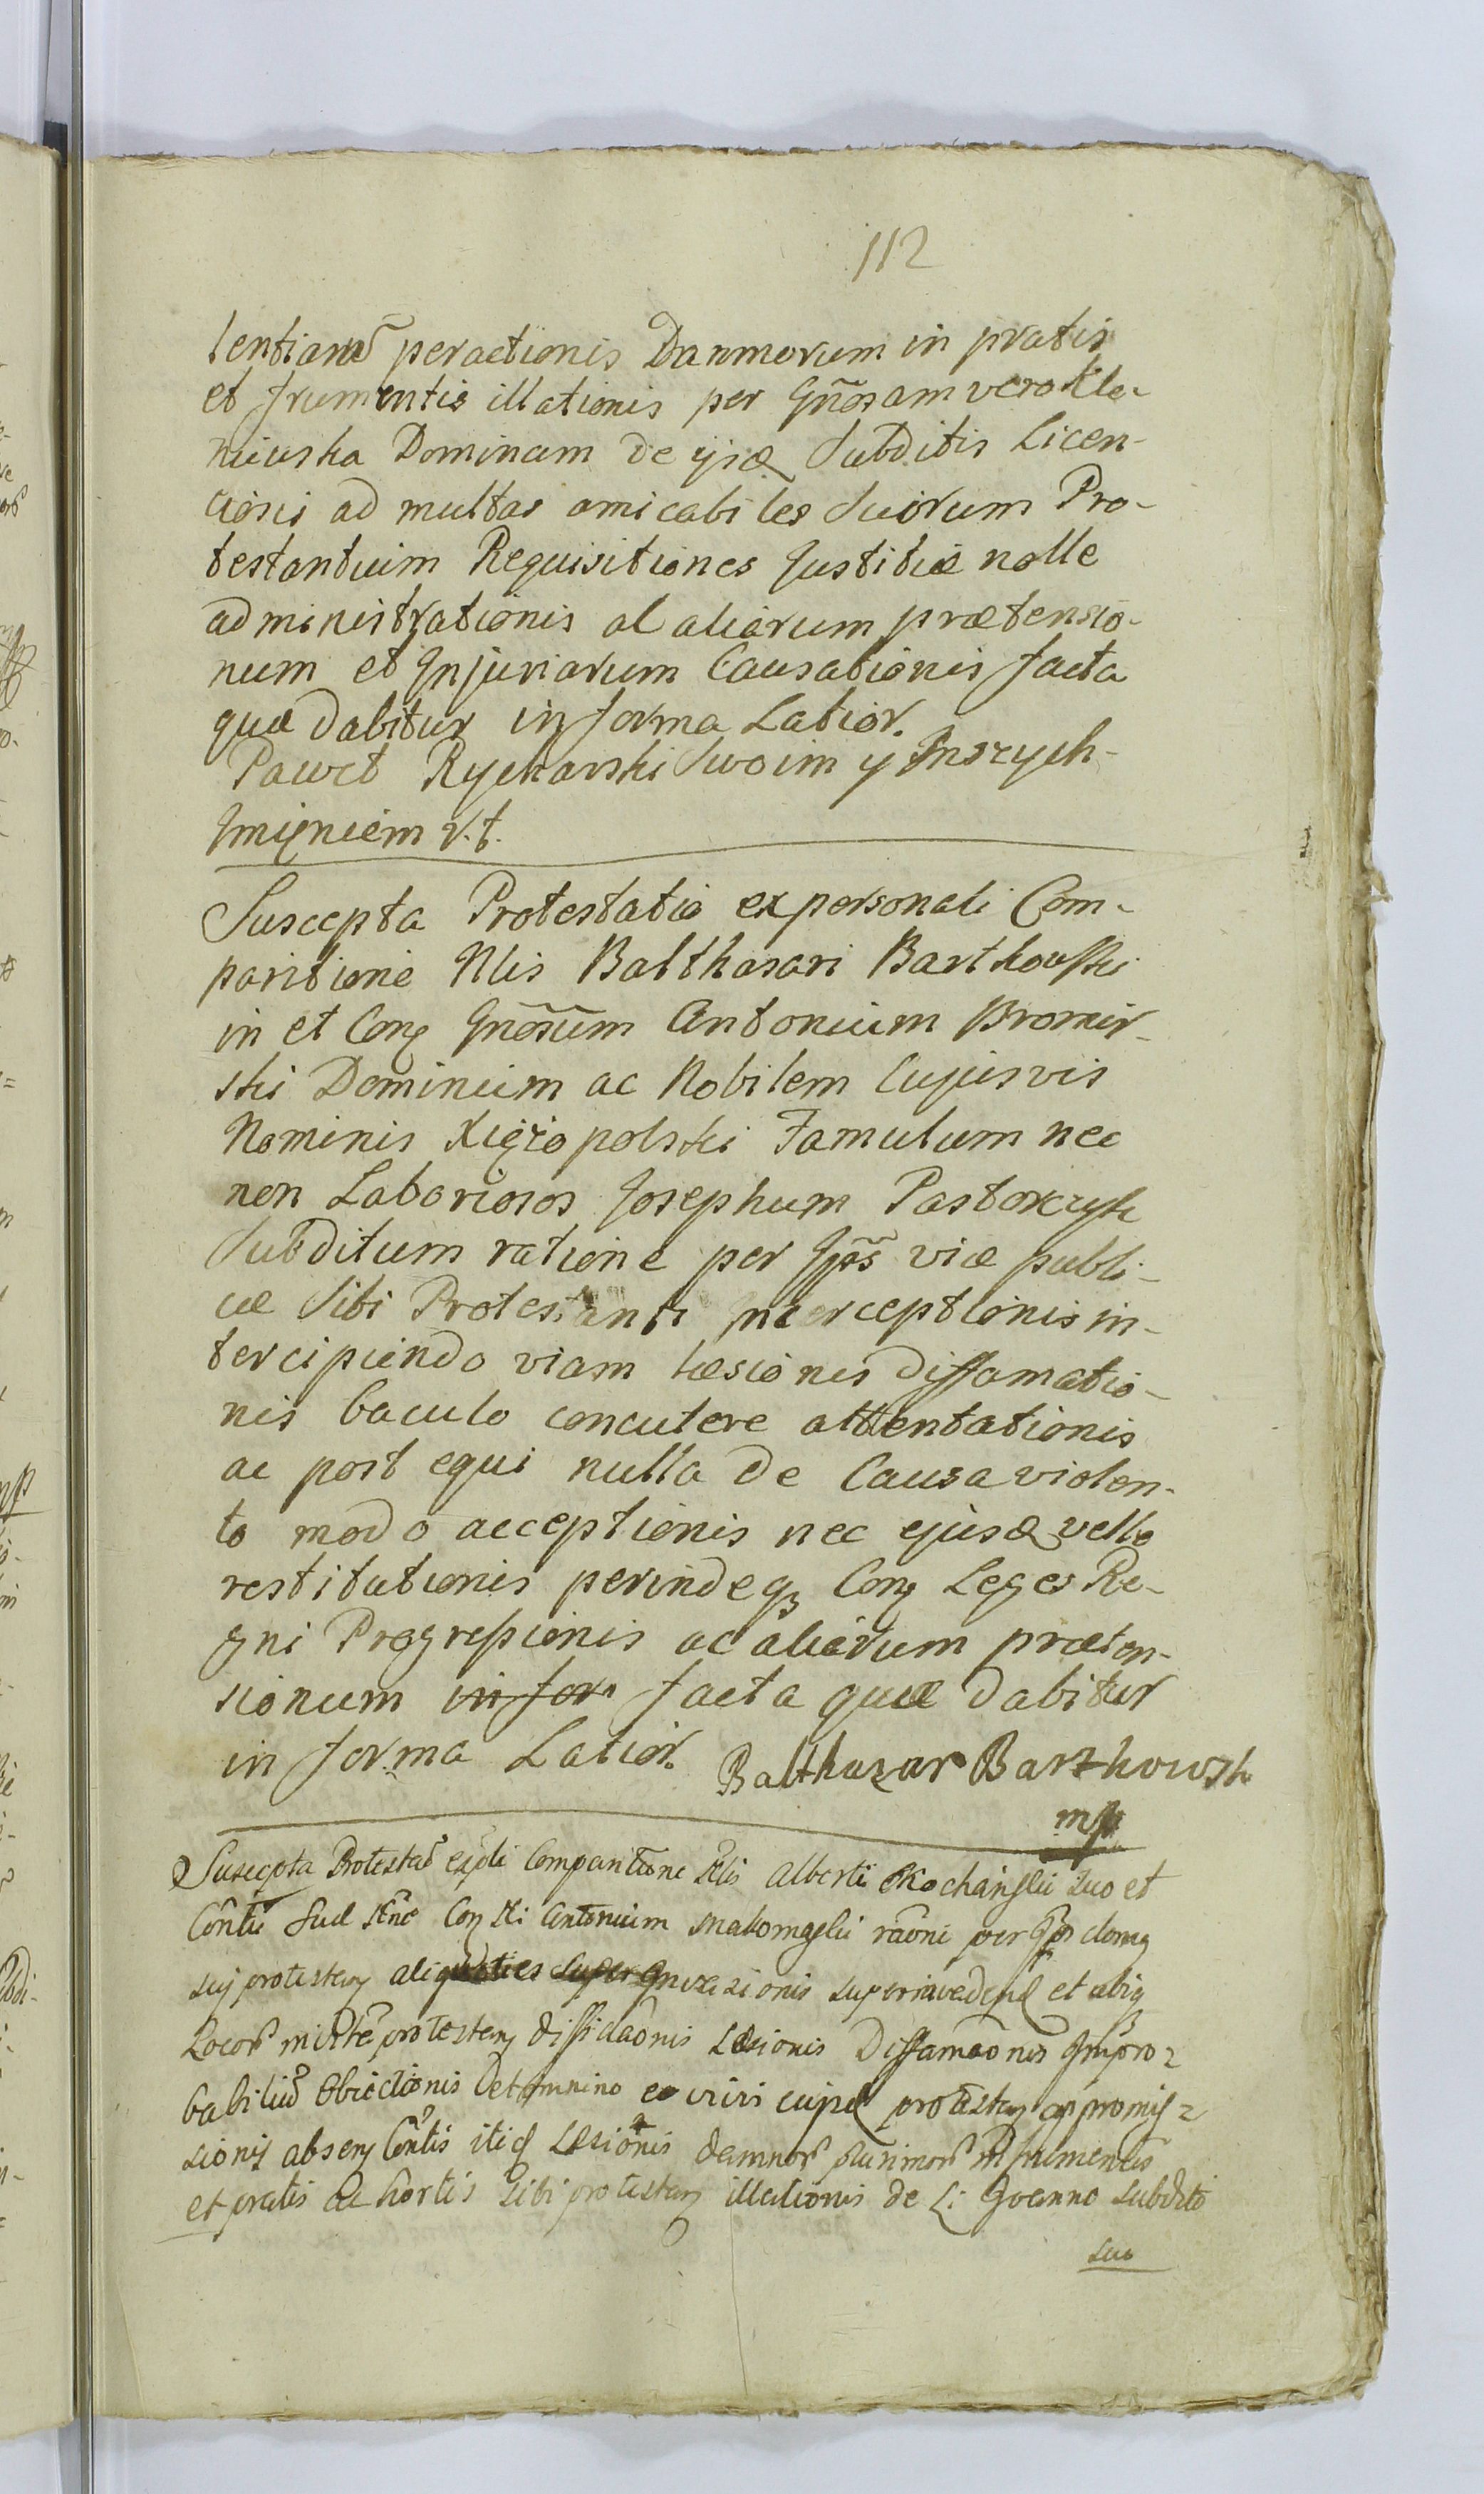 112
lentiarũ peractionis Damnorum in pratis
et frumentis illationis per Gñosam vero Kle-
niewska Dominam de ijsq Subditis Licen-
ciosis ad multas amicabiles Suorum Pro-
testantium Requisitiones Justitiæ nolle
administrationis al aliorum prætensio-
num et Injuriarum Causationis facta
quæ dabitur in forma Latior.
Paweł Rycharski Swoim y Inszych
Imięniem r.t.
Suscepta Protestatio ex personali Com-
paritione Nlis Balthasari Barthowski
in et Con Gñosum Antonium Bromir-
ski Dominum ac Nobilem Cujusvis
Nominis Xięzopolski Famulum nec
non Laboriosos Josephum Pastorczyk
Subditum ratione per Ipõs viæ publi-
cæ Sibi Protestanti Interceptionis in-
tercipiendo viam Læsionis Diffamatio-
nis baculo concutere attentationis
ac post equi nulla de Causa violen-
to modo acceptionis nec ejusq velle
restitutionis perindeq Con Leges Re-
gni Progressionis ac aliorum præten-
sionum in for facta quæ dabitur
in forma Latior. Balthazar Barthowsk
mp
Suscepta Protestao expli Comparitione Nlis Alberti Kochanski suo et
Contis suæ nõe Con Nli Antonium Makomaski raõne per Ips domus
sui protestan aliquoties super Invasionis superinvadend et ubiq
Locor protestan diffidaõnis Læsionis Diffamaõnis Impro-
babiliũ Obiectionis Detomnino protestan
sionis absen Contis itiq Læsionis damnor plurimor in frumentis
et pratis ac hortis sibi protestan illationis de L: Joanno subdito
suo